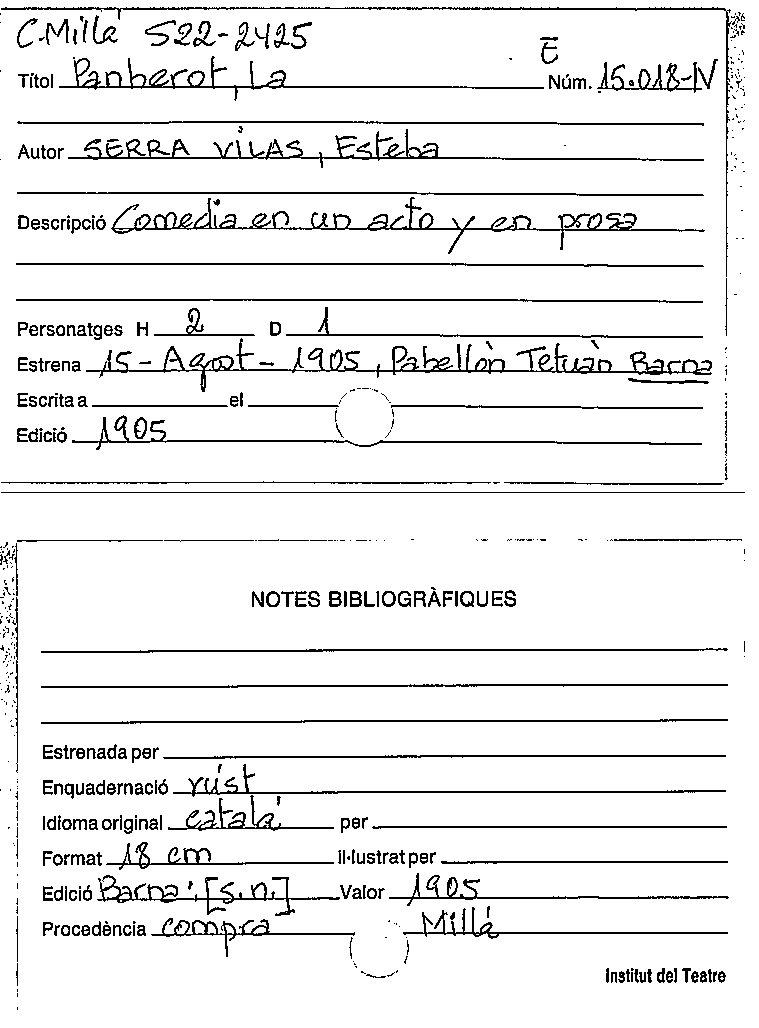 C.Millá 522-2425
Títol Panberot, La
E
Núm. 15.018-IV
Autor SERRA VILAS, Esteba
Descripció Comedia en un acto y en prosa
Personatges H 2 D 1
Estrena 15-Agost-1905, Pabellòn Tetuàn Barna
Escrita a el
Edició 1905
NOTES BIBLIOGRÀFIQUES
Estrenada per
Enquadernació rúst
Idioma original catalá per
Format 18 cm il·lustrat per
Edició Barna: [s.n.] Valor 1905
Procedència compra Millá
Institut del Teatre